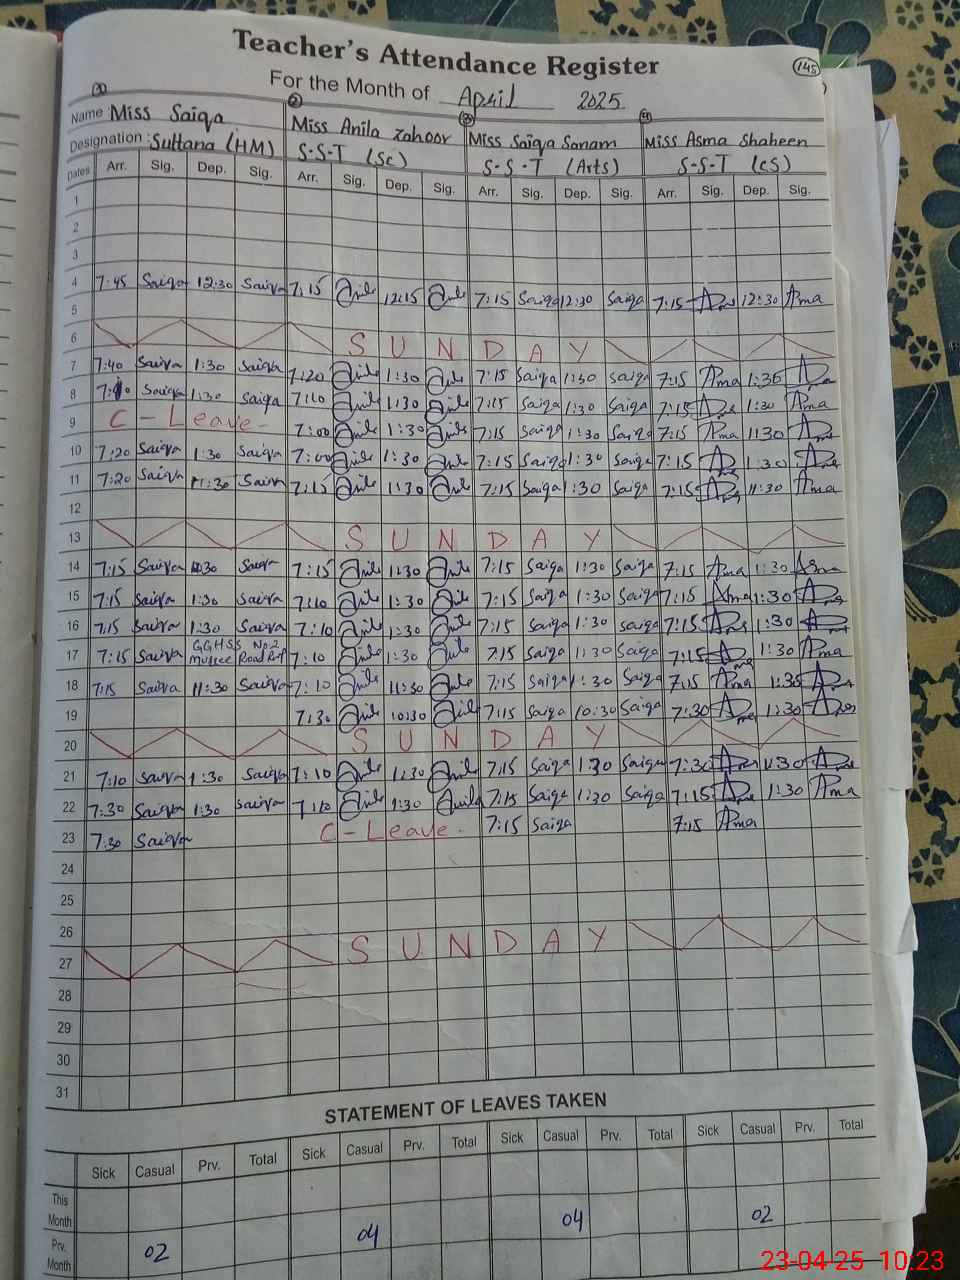 Teacher's Attendance Register
145
For the Month of April 2025
1 2 3 4
Name : Miss Saiqa Miss Anila Zahoor Miss Saiqa Sanam Miss Asma Shaheen
Designation : Sultana (HM) S-S-T (Sc) S-S-T (Arts) S-S-T (CS)
Dates Arr. Sig. Dep. Sig. Arr. Sig. Dep. Sig. Arr. Sig. Dep. Sig. Arr. Sig. Dep. Sig.
1
2
3
4 7:45 Saiqa 12:30 Saiqa 7:15 Anila 12:15 Anila 7:15 Saiqa 12:30 Saiqa 7:15 12:30 Asma
5
6 SUNDAY
7 7:40 Saiqa 1:30 Saiqa 7:20 Anila 1:30 Anila 7:15 Saiqa 1:30 Saiqa 7:15 Asma 1:35
8 Saiqa 1:30 Saiqa 7:10 Anila 1:30 Anila 7:15 Saiqa 1:30 Saiqa 7:15 1:30 Asma
9 C-Leave- 7:00 Anila 1:30 Anila 7:15 Saiqa 1:30 Saiqa 7:15 Asma 1:30
10 7:20 Saiqa 1:30 Saiqa 7:00 Anila 1:30 Anila 7:15 Saiqa 1:30 Saiqa 7:15 1:30
11 7:20 Saiqa 11:30 Saiqa 7:15 Anila 1:30 Anila 7:15 Saiqa 1:30 Saiqa 7:15 11:30 Asma
12
13 SUNDAY
14 7:15 Saiqa Saiqa 7:15 Anila 1:30 Anila 7:15 Saiqa 1:30 Saiqa 7:15 Asma 1:30 Asma
15 7:15 Saiqa 1:30 Saiqa 7:10 Anila 1:30 Anila 7:15 Saiqa 1:30 Saiqa 7:15 Asma 1:30
16 7:15 Saiqa 1:30 Saiqa 7:10 Anila 1:30 Anila 7:15 Saiqa 1:30 Saiqa 7:15 1:30
17 7:15 Saiqa GGHSS No.2 Murree Road 7:10 Anila 1:30 Anila 7:15 Saiqa 1:30 Saiqa 7:15 1:30 Asma
18 7:15 Saiqa 11:30 Saiqa 7:10 Anila 11:30 Anila 7:15 Saiqa 1:30 Saiqa 7:15 Asma 1:35
19 7:30 Anila 10:30 Anila 7:15 Saiqa 10:30 Saiqa 7:30 1:30
20 SUNDAY
21 7:10 Saiqa 1:30 Saiqa 7:10 Anila 1:30 Anila 7:15 Saiqa 1:30 Saiqa 7:30 1:30
22 7:30 Saiqa 1:30 Saiqa 7:10 Anila 1:30 Anila 7:15 Saiqa 1:30 Saiqa 7:15 1:30 Asma
23 7:30 Saiqa C-Leave- 7:15 Saiqa 7:15 Asma
24
25
26
27 SUNDAY
28
29
30
31
STATEMENT OF LEAVES TAKEN
Sick Casual Prv. Total Sick Casual Prv. Total Sick Casual Prv. Total Sick Casual Prv. Total
This Month
Prv. Month 02 04 04 02
23-04-25 10:23